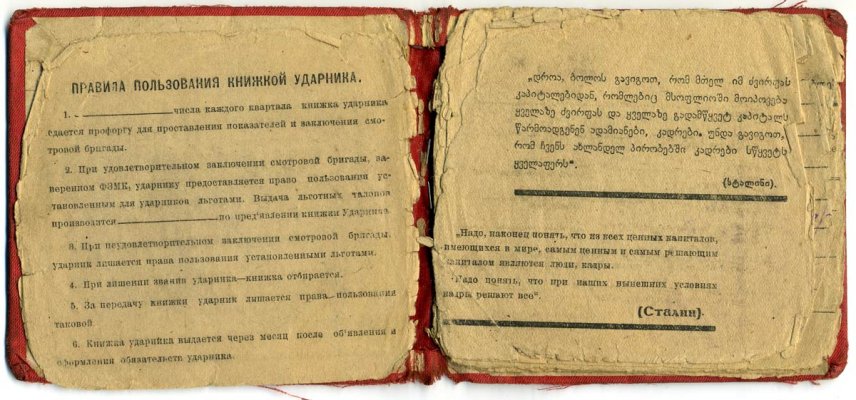 ПРАВИЛА ПОЛЬЗОВАНИЯ КНИЖКОЙ УДАРНИКА.
1. числа каждого квартала книжка ударника
сдается профоргу для проставления показателей и заключении смо-
тровой бригады.
2. При удовлетворительном заключении смотровой бригады, за-
веренном ФЗМК, ударнику предоставляется право пользования ус-
тановленным для ударников льготами. Выдача льготных талонов
производится по пред'явлении книжки Ударника.
3. При неудовлетворительном заключении смотровой бригады,
ударник лишается права пользования установленными льготами.
4. При лишении звания ударника—книжка отбирается.
5. За передачу книжки ударник лишается права пользования
таковой
6. Книжка ударника выдается через месяц после об'явления и
оформления обязательств ударника.
„დროა, ბოლოს გავიგოთ, რომ მთელ იმ ძვირფას
კაპიტალებიდან, რომლებიც მსოფლიოში მოიპოვება
ყველაზე ძვირფას და ყველაზე გადამწყვეტ კაპიტალს
წარმოადგენენ ადამიანები, კადრები. უნდა გავიგოთ,
რომ ჩვენს ახლანდელ პირობებში კადრები სწყვეტს
ყველაფერს“.
(სტალინი).
„Надо, наконец понять, что из всех ценных капиталов,
имеющихся в мире, самым ценным и самым решающим
капиталом являются люди, кадры.
Надо понять, что при наших нынешних условиях
кадры решают все“.
(Сталин)